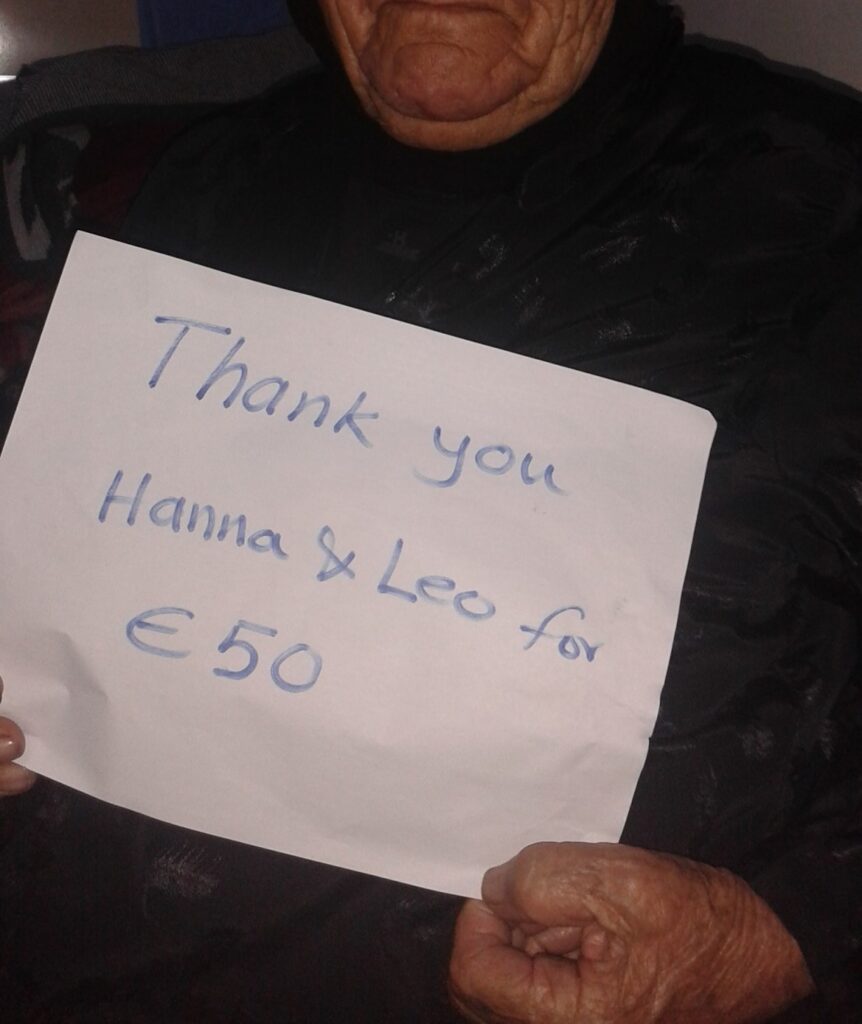 Thank you
Hanna & Leo for
€50